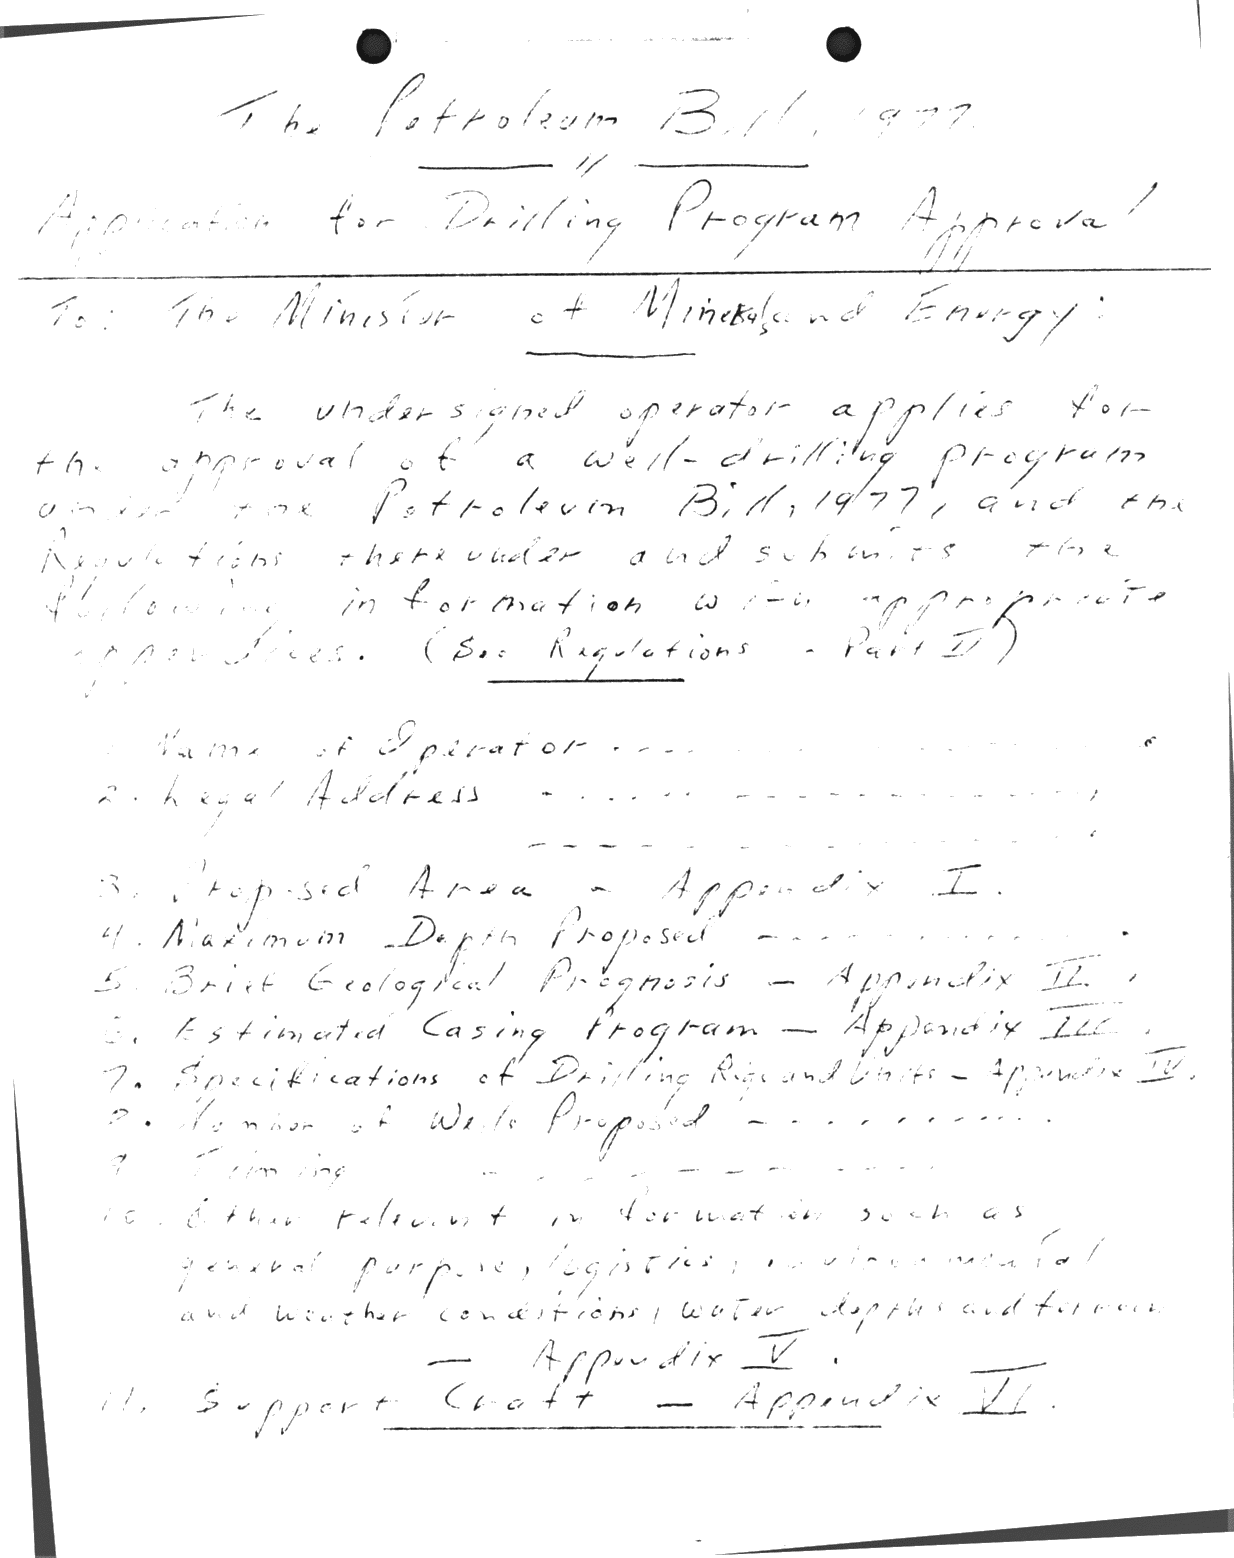 The Petroleum Bill, 1977.
"
Application for Drilling Program Approval
To: The Minister of Minerals and Energy:
The undersigned operator applies for
the approval of a well-drilling program
under the Petroleum Bill, 1977, and the
Regulations thereunder and submits the
following information with appropriate
appendices. (See Regulations - Part II)
1. Name of Operator - - - - - - - - - - .
2. Legal Address - - - - - - - - - - ,
- - - - - - - - - - .
3. Proposed Area - Appendix I.
4. Maximum Depth Proposed - - - - - - - - - - .
5. Brief Geological Prognosis - Appendix II.
6. Estimated Casing Program - Appendix III.
7. Specifications of Drilling Rigs and Units - Appendix IV.
8. Number of Wells Proposed - - - - - - - - - - .
9. Timing - - - - - - - - - -
10. Other relevant information such as
general purpose, logistics, environmental
and weather conditions, water depths and terrain
- Appendix V.
11. Support Craft - Appendix VI.